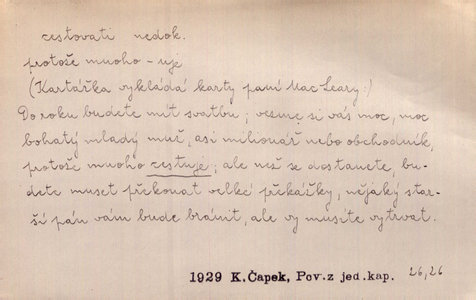 cestovati nedok.
protože mnoho -uje
(Kartářka vykládá karty paní Mac Leary:)
Do roku budete mít svatbu; vezme si vás moc, moc
bohatý mladý muž, asi milionář nebo obchodník,
protože mnoho cestuje; ale než se dostanete, bu-
dete muset překonat velké překážky, nějaký star-
ší pán vám bude bránit, ale vy musíte vytrvat.
1929 K.Čapek, Pov.z jed.kap. 26,26